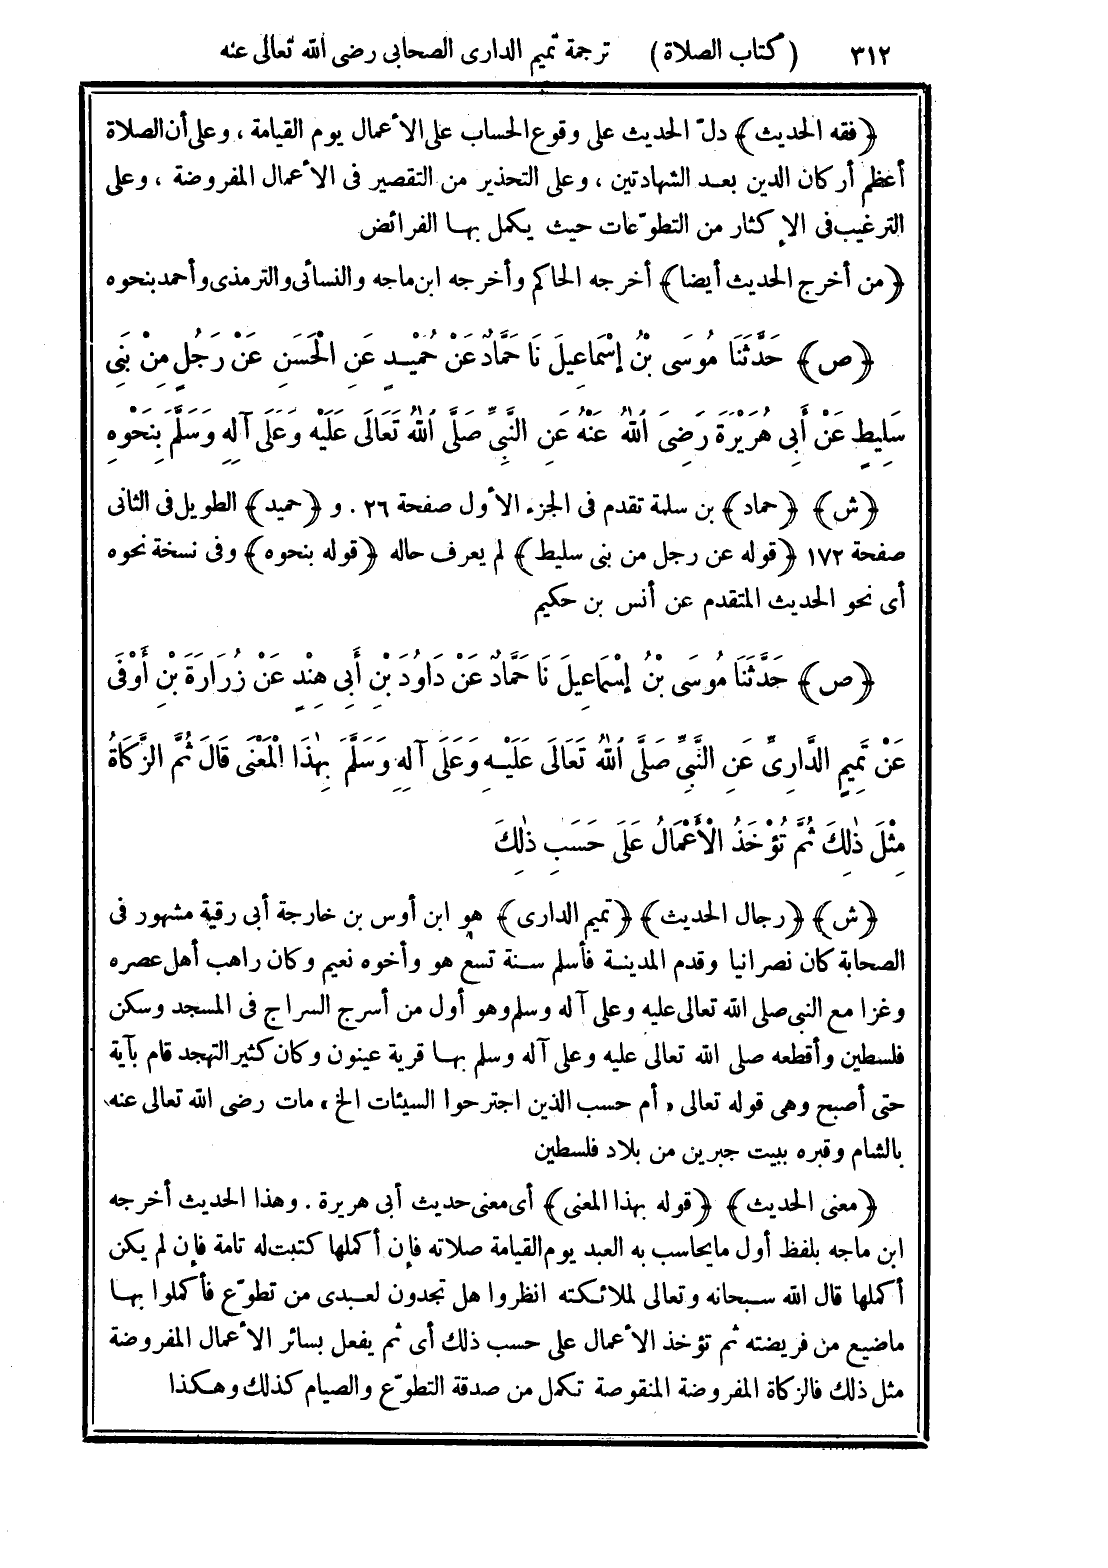 ٣١٢ (كتاب الصلاة) ترجمة تميم الدارى الصحابى رضى الله تعالى عنه
﴿فقه الحديث﴾ دلّ الحديث على وقوع الحساب على الأعمال يوم القيامة ، وعلى أن الصلاة
أعظم أركان الدين بعد الشهادتين ، وعلى التحذير من التقصير فى الأعمال المفروضة ، وعلى
الترغيب فى الإكثار من التطوّعات حيث يكمل بها الفرائض
﴿من أخرج الحديث أيضا﴾ أخرجه الحاكم وأخرجه ابن ماجه والنسائى والترمذى وأحمد بنحوه
﴿ص﴾ حَدَّثَنَا مُوسَى بْنُ إِسْمَاعِيلَ نَا حَمَّادٌ عَنْ حُمَيْدٍ عَنِ الْحَسَنِ عَنْ رَجُلٍ مِنْ بَنِى
سَلِيطٍ عَنْ أَبِى هُرَيْرَةَ رَضِىَ اللهُ عَنْهُ عَنِ النَّبِىِّ صَلَّى اللهُ تَعَالَى عَلَيْهِ وَعَلَى آلِهِ وَسَلَّمَ بِنَحْوِهِ
﴿ش﴾ ﴿حماد﴾ بن سلمة تقدم فى الجزء الأول صفحة ٢٦ . و ﴿حميد﴾ الطويل فى الثانى
صفحة ١٧٢ ﴿قوله عن رجل من بنى سليط﴾ لم يعرف حاله ﴿قوله بنحوه﴾ وفى نسخة نحوه
أى نحو الحديث المتقدم عن أنس بن حكيم
﴿ص﴾ حَدَّثَنَا مُوسَى بْنُ إِسْمَاعِيلَ نَا حَمَّادٌ عَنْ دَاوُدَ بْنِ أَبِى هِنْدٍ عَنْ زُرَارَةَ بْنِ أَوْفَى
عَنْ تَمِيمٍ الدَّارِىِّ عَنِ النَّبِىِّ صَلَّى اللهُ تَعَالَى عَلَيْهِ وَعَلَى آلِهِ وَسَلَّمَ بِهٰذَا الْمَعْنَى قَالَ ثُمَّ الزَّكَاةُ
مِثْلَ ذٰلِكَ ثُمَّ تُؤْخَذُ الْأَعْمَالُ عَلَى حَسَبِ ذٰلِكَ
﴿ش﴾ ﴿رجال الحديث﴾ ﴿تميم الدارى﴾ هو ابن أوس بن خارجة أبى رقية مشهور فى
الصحابة كان نصرانيا وقدم المدينة فأسلم سنة تسع هو وأخوه نعيم وكان راهب أهل عصره
وغزا مع النبى صلى الله تعالى عليه وعلى آله وسلم وهو أول من أسرج السراج فى المسجد وسكن
فلسطين وأقطعه صلى الله تعالى عليه وعلى آله وسلم بها قرية عينون وكان كثير التهجد قام بآية
حتى أصبح وهى قوله تعالى « أم حسب الذين اجترحوا السيئات الخ » مات رضى الله تعالى عنه
بالشام وقبره ببيت جبرين من بلاد فلسطين
﴿معنى الحديث﴾ ﴿قوله بهذا المعنى﴾ أى معنى حديث أبى هريرة . وهذا الحديث أخرجه
ابن ماجه بلفظ أول مايحاسب به العبد يوم القيامة صلاته فإن أكملها كتبت له تامة فإن لم يكن
أكملها قال الله سبحانه وتعالى لملائكته انظروا هل تجدون لعبدى من تطوّع فأكملوا بها
ماضيع من فريضته ثم تؤخذ الأعمال على حسب ذلك أى ثم يفعل بسائر الأعمال المفروضة
مثل ذلك فالزكاة المفروضة المنقوصة تكمل من صدقة التطوّع والصيام كذلك وهكذا